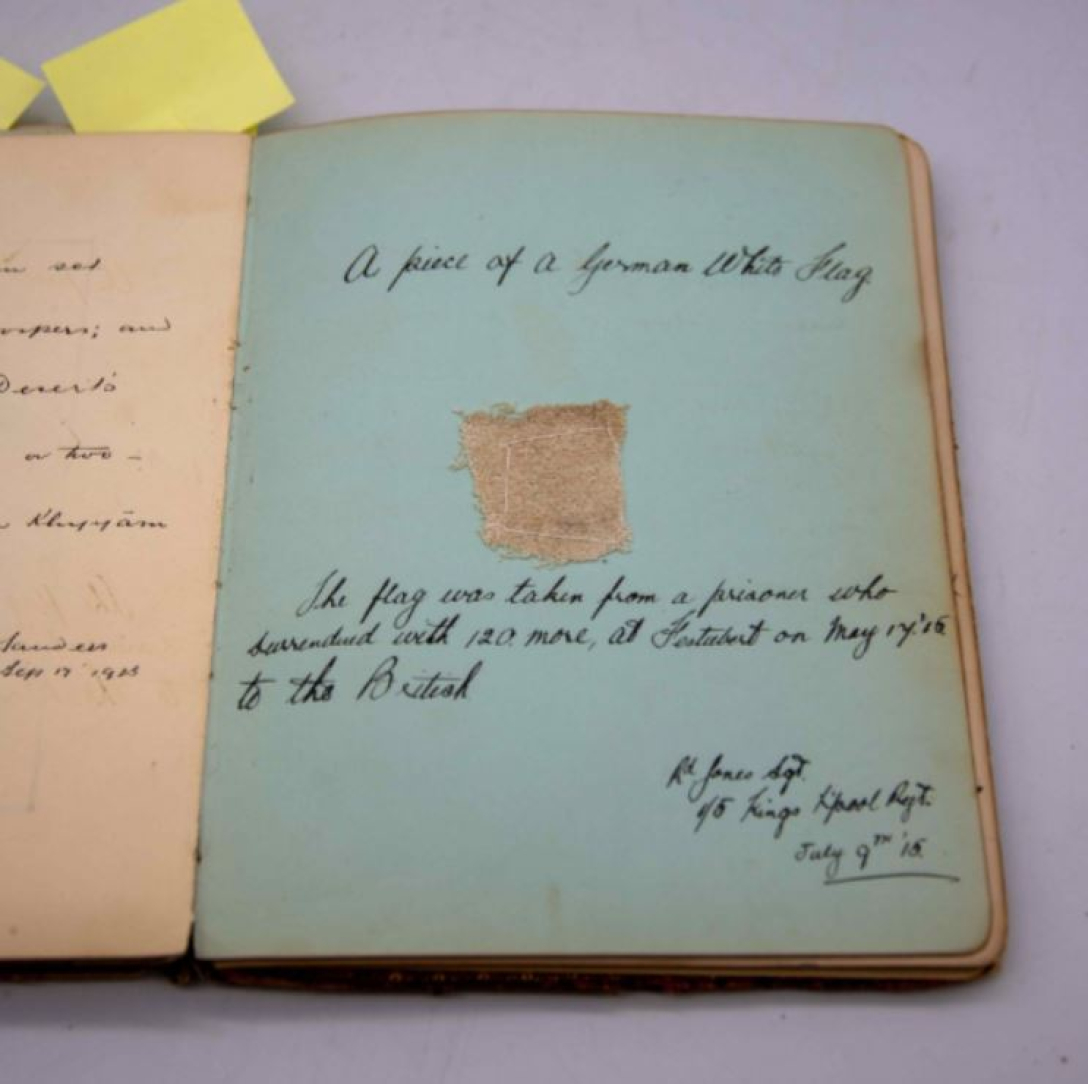 set
and
Desert's
or two -
Khayyám
Sep 17 1915
A piece of a German White Flag.
The flag was taken from a prisoner who
surrendued with 120 more, at Festubert on May 17 '15
to the British
Rd Jones Sgt.
1/5 Kings L'pool Regt.
July 9th '15.